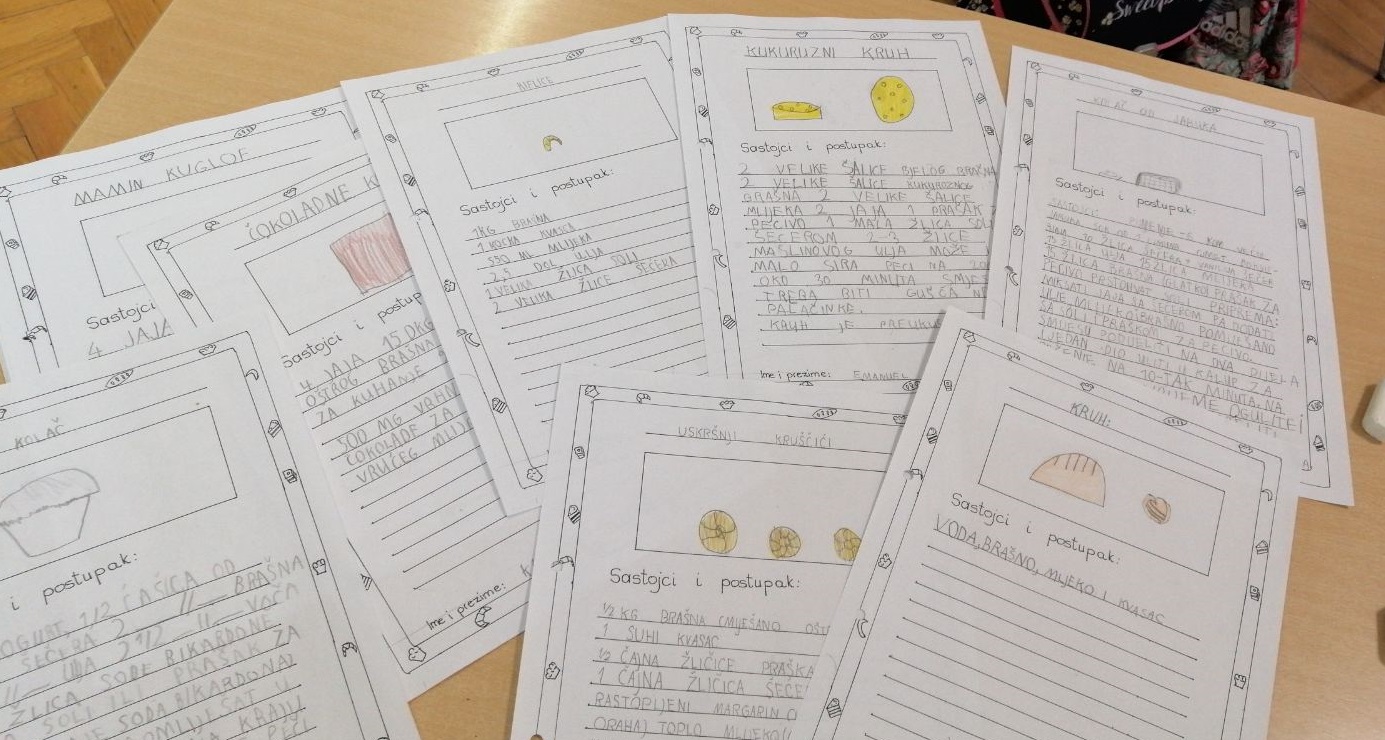 MAMIN KUGLOF
Sastojci
4 JAJA
ČOKOLADNE K
Sastojci i postup
4 JAJA 15 DKG
OŠTROG BRAŠNA
ZA KUHANJE
500 MG VRHN
ČOKOLADE ZA
VRUĆEG MLIJE
Ime i prezime: K
BIJELICE
Sastojci i postupak:
1KG BRAŠNA
1 KOCKA KVASCA
550 ML MLIJEKA
2,5 DCL ULJA
1 VELIKA ŽLICA SOLI
2 VELIKA ŽLICE ŠEĆERA
KUKURUZNI KRUH
Sastojci i postupak:
2 VELIKE ŠALICE BIJELOG BRAŠNA
2 VELIKE ŠALICE KUKURUZNOG
BRAŠNA 2 VELIKE ŠALICE
MLIJEKA 2 JAJA 1 PRAŠAK
PECIVO 1 MALA ŽLICA SOLI
ŠEĆEROM 2-3 ŽLICE
MASLINOVOG ULJA MOŽE
MALO SIRA PEĆI NA 200
OKO 30 MINUTA SMJES
TREBA BITI GUŠĆA NE
PALAČINKE.
KRUH JE PREUKUS
Ime i prezime: EMANUEL
KOLAČ OD JABUKA
Sastojci i postupak:
SASTOJCI
JABUKA SOK OD 1 LIMUNA CIMET
ŽLICA ŠEĆERA 1 VANILIJA ŠEĆER
15 ŽLICA ULJA 15 ŽLICA MLIJEKA
15 ŽLICA BRAŠNA (GLATKO) PRAŠAK ZA
PECIVO PRSTOHVAT SOLI. PRIPREMA:
MIKSATI JAJA SA ŠEĆEROM PA DODATI
ULJE, MLIJEKO, BRAŠNO POMIJEŠANO
SA SOLI I PRAŠKOM ZA PECIVO.
SMJESU PODIJELITI NA DVA DIJELA
JEDAN DIO ULITI U KALUP ZA
PEČENJE NA 10-TAK MINUTA. NA
OGULITE I
KOLAČ
i postupak:
JOGURT, 1/2 ČAŠICA OD
ŠEĆERA 2 -II- BRAŠNA
-II- ULJA 3 1/2 -II- VOĆA
ŽLICA SODE BIKARBONE
SOLI ILI PRAŠAK ZA
SODA BIKARBONA)
POMIJEŠAT U
NA KRAJU
PEĆI
USKRŠNJI KRUŠČIĆI
Sastojci i postupak:
1/2 KG BRAŠNA (MJEŠANO OŠT
1 SUHI KVASAC
1/2 ČAJNA ŽLIČICE PRAŠKA
1 ČAJNA ŽLIČICA ŠEĆE
RASTOPLJENI MARGARIN O
ORAHA) TOPLO MLIJEKO(
KRUH:
Sastojci i postupak:
VODA, BRAŠNO, MLJEKO I KVASAC
adidas